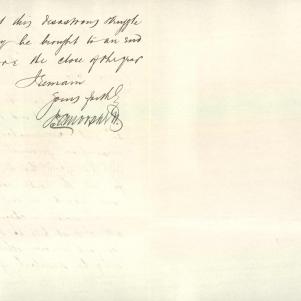 this disastrous struggle
be brought to an end
the close of the year
I remain
Yours